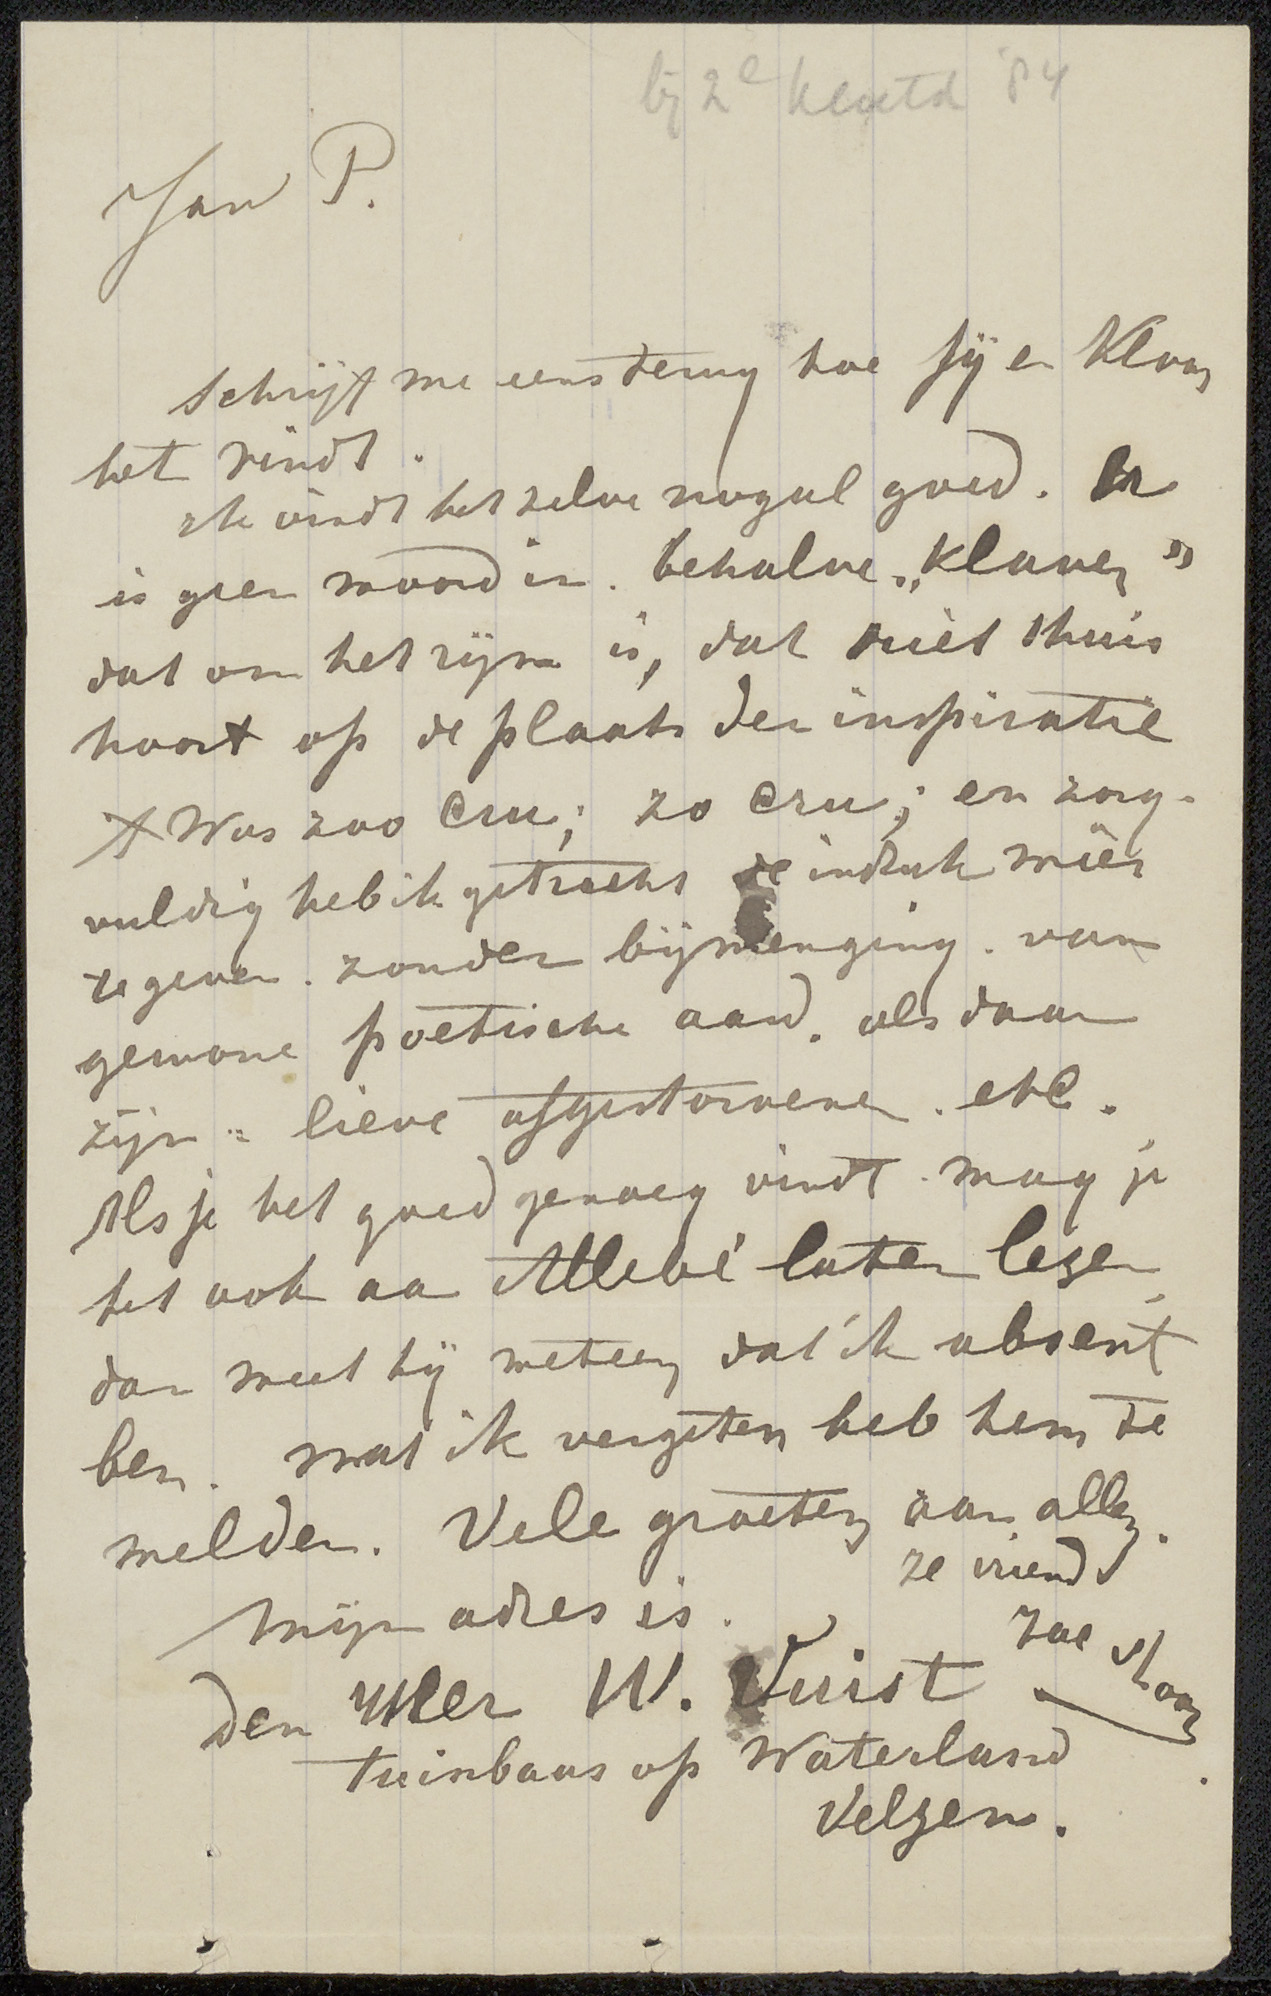 bij 2e 84
Jan P.
Schrijf me eens terug hoe jij en Kloos
het vindt.
ik vindt het zelve nogal goed. Er
is geen woord in. behalve „klaver"
dat om het rijm is, dat niet thuis
hoort op de plaats der inspiratie
't Was zoo cru; zo cru; en zorg-
vuldig heb ik getracht de indruk wéer
te geven. zonder bijmenging. van
gewone poëtische aard. als daar
zijn „ lieve afgestorvenen. etc.
Als je het goed genoeg vindt. mag je
het ook aan Allebé laten lezen,
dan weet hij meteen dat ik absent
ben. wat ik vergeten heb hem te
melden. Vele groeten aan allen.
ze vriend
Mijn adres is.
den Heer W. Vuist
tuinbaas op Waterland
Velzen.